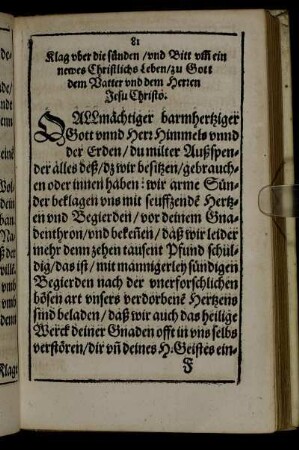 81
Klag vber die sünden / vnd Bitt vm̃ ein
newes Christlichs Leben / zu Gott
dem Vatter vnd dem Herren
Jesu Christo.
O ALLmächtiger barmhertziger
Gott vnnd Herr Himmels vnnd
der Erden / du milter Außspen-
der alles deß / dz wir besitzen / gebrauch-
en oder innen haben : wir arme Sün-
der beklagen vns mit seuffzendẽ Hertz-
en vnd Begierden / vor deinem Gna-
denthron / vnd bekeñen / daß wir leider
mehr denn zehen tausent Pfund schül-
dig / das ist / mit mannigerley sündigen
Begierden nach der vnerforschlichen
bösen art vnsers verdorbenẽ Hertzens
sind beladen / daß wir auch das heilige
Werck deiner Gnaden offt in vns selbs
verstören / dir vñ deines H. Geistes ein-
F